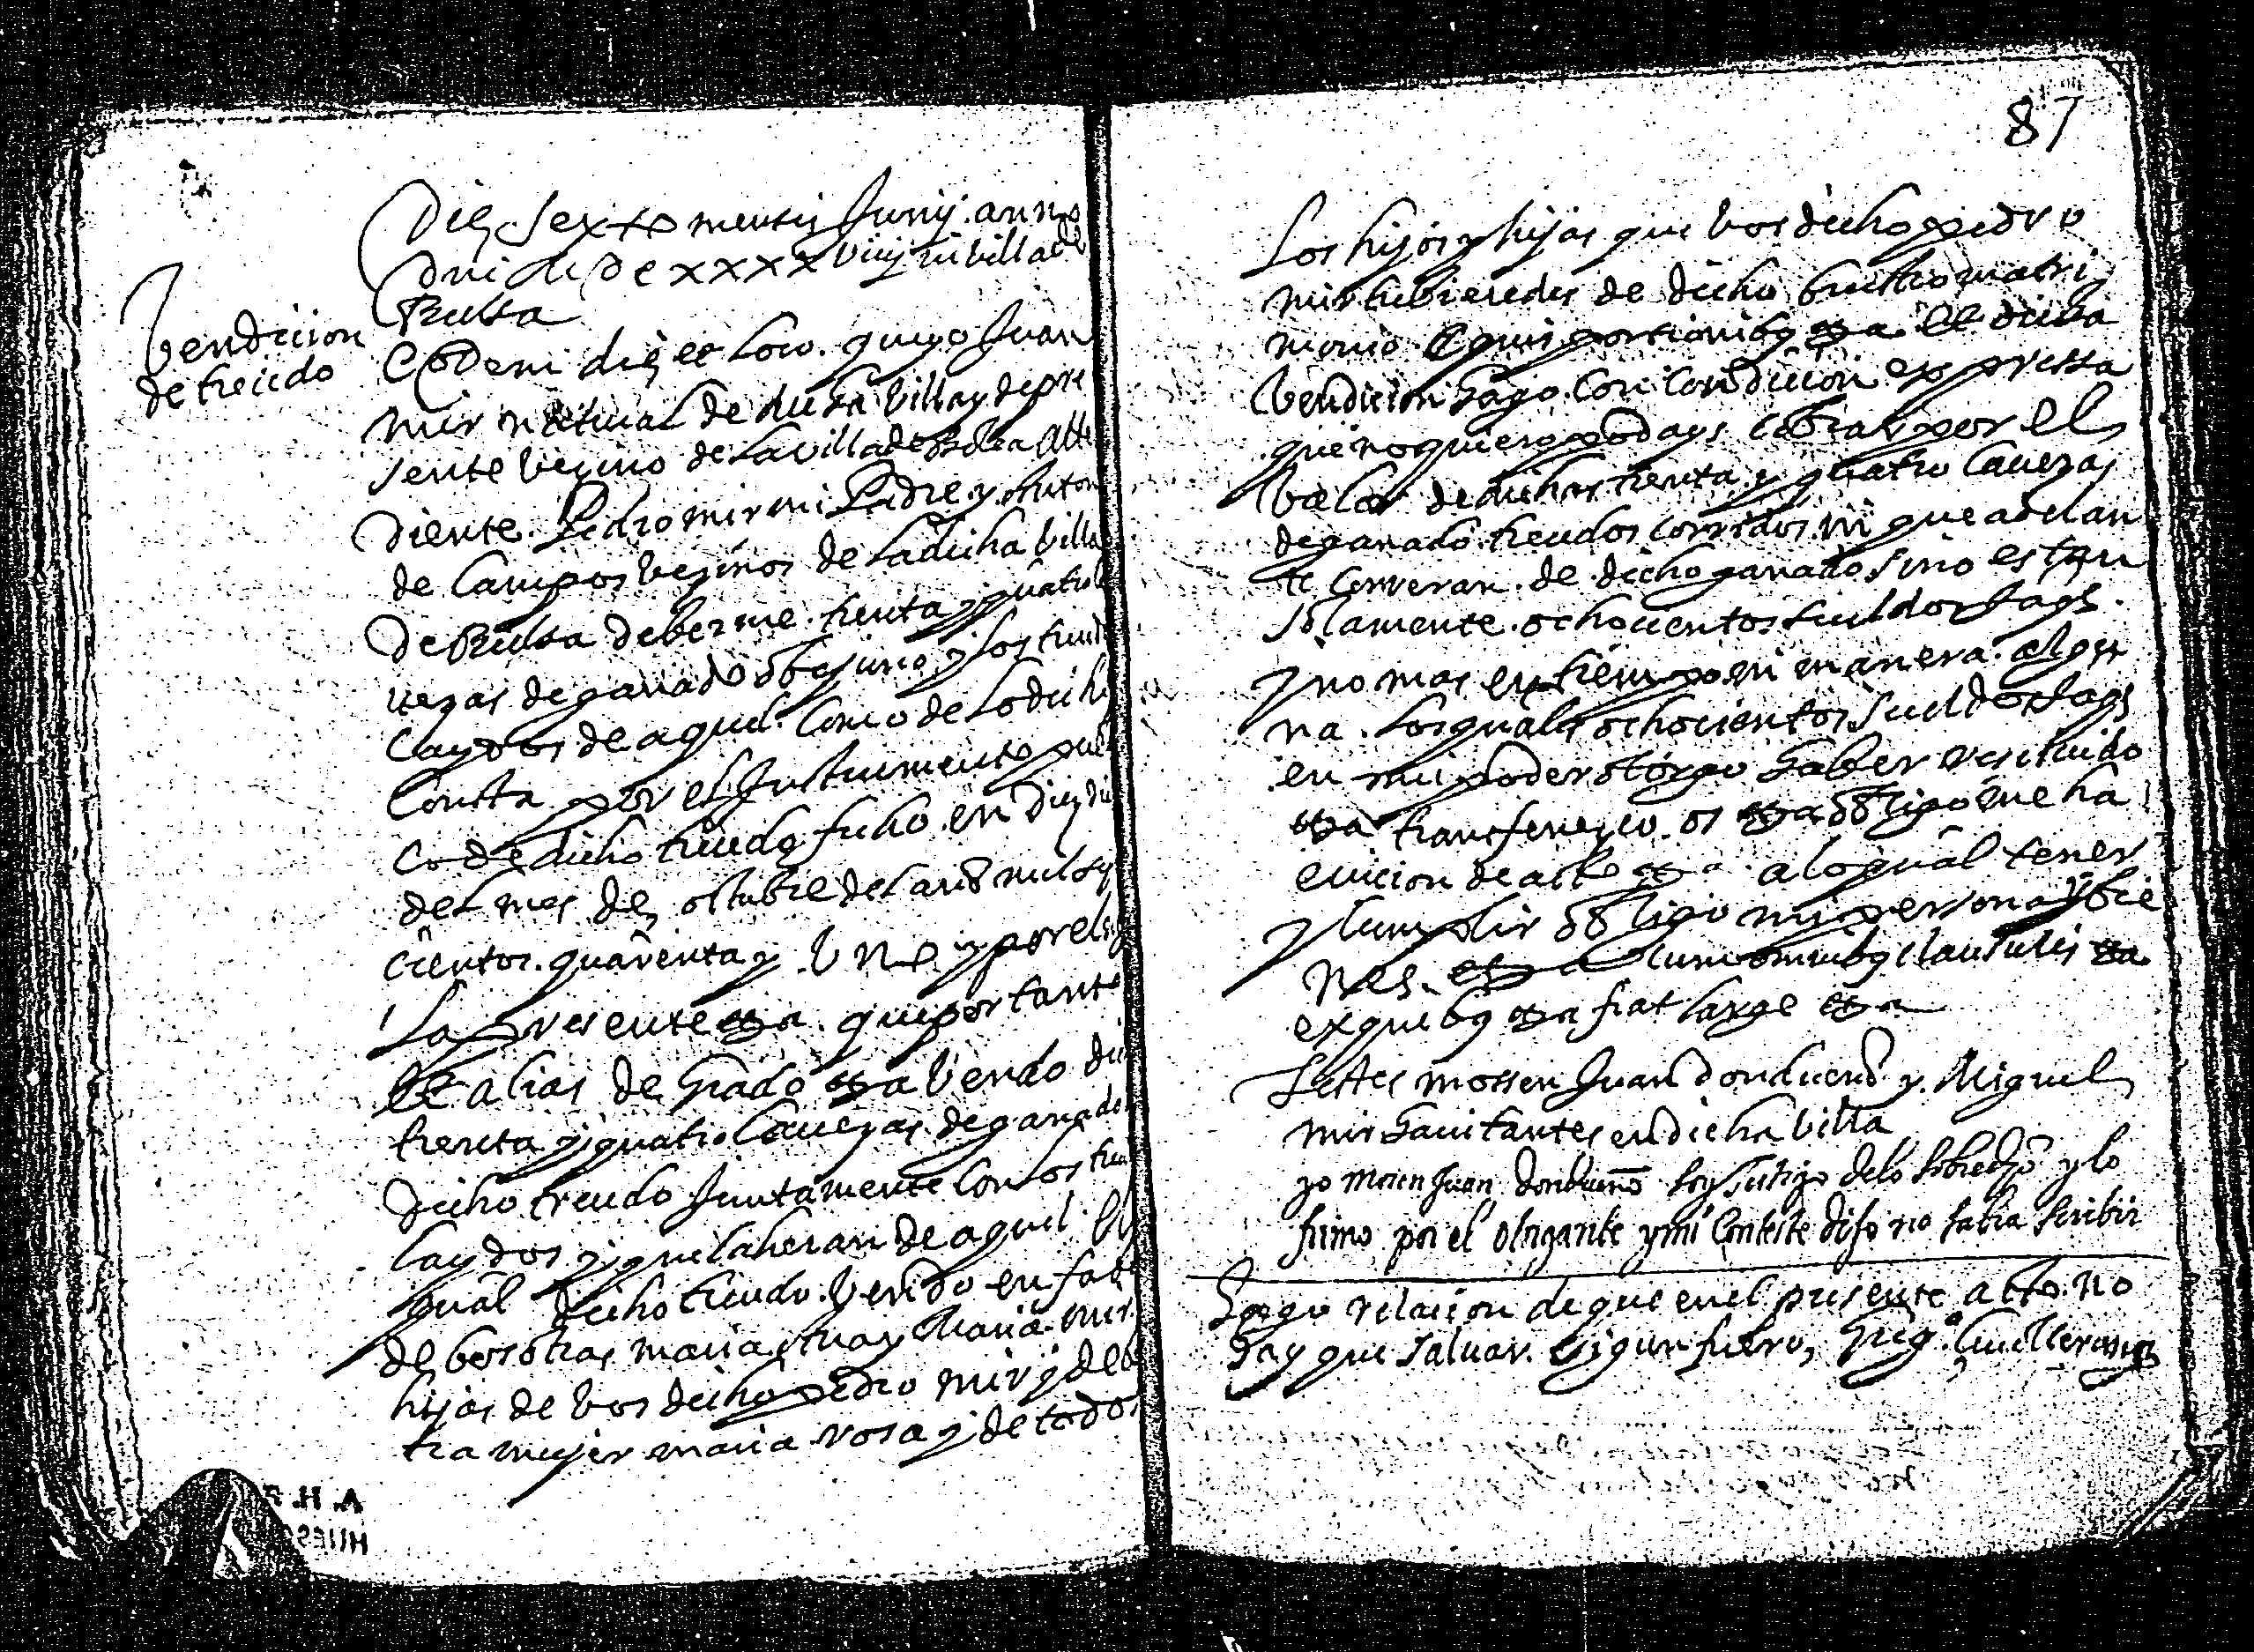 87
Vendicion
de treudo
Die sexto mensis Junij anno
Dni M DC xxxx viiij in villa de
Eodem die et loco. que yo Juan
mir natural de dicha villa y de pre
sente vezino de la villa de atten
diente. Pedro mir mi Padre y Anton
de Campos vezinos de la dicha villa
de deberme trenta y quatro ca
uezas de ganado obejuno y los treud
caydos de aquel. Como de lo dicho
consta por el Instrumento publi
co de dicho treudo fecho en diez di
del mes de octubre del año mil sey
cientos. quarenta y Uno y por el
La presente etta. que por tanto
alias de grado etta vendo di
trenta y quatro Cauezas de ganado
dicho treudo Juntamente con los treu
caydos y que caheran de aquel. El
qual dicho treudo. Vendo en fabo
de bosotras maria Juay Maria mir
hijas de vos dicho pedro mir y de bu
tra mujer maria rosa y de todos
Los hijos y hijas que vos dicho pedro
mir tubieredes de dicho buestro matri
monio equis portionibus etta le dicha
Vendicion hago. Con Condicion expressa
que no quiero podays cobrar por el
Valor de dichas trenta y quatro Cauezas
de ganado. treudos corridos ni que adelan
te Correran. de dicho ganado sino es tan
solamente. ochocientos sueldos Jaqs.
y no mas en tiempo ni manera. algu
na. Los quales ochocientos sueldos Jaqs
en mi poder otorgo haber rescibido
etta transfiriendo. os etta obligome ha
euicion de acto etta a lo qual tener
y Cumplir obligo mi persona y bie
nes. etta cum omnibus clausulis etta
ex quibus etta fiat large etta
Testes mossen Juan Donbueno y Miguel
mir hauitantes en dicha villa
yo mosen Juan Donbueno soy testigo de lo sobredho y lo
firmo por el otorgante y mi Conteste dijo no sabia scribir
Hago relacion de que en el presente acto. no
hay que saluar. sigun fuero,